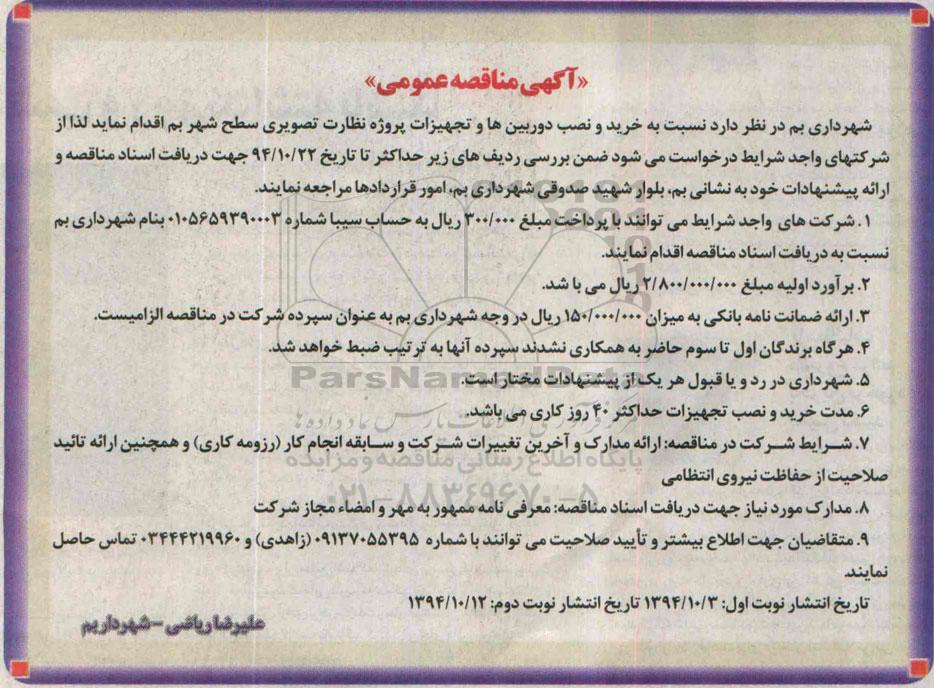 «آگهی مناقصه عمومی»
شهرداری بم در نظر دارد نسبت به خرید و نصب دوربین ها و تجهیزات پروژه نظارت تصویری سطح شهر بم اقدام نماید لذا از
شرکتهای واجد شرایط درخواست می شود ضمن بررسی ردیف های زیر حداکثر تا تاریخ ۹۴/۱۰/۲۲ جهت دریافت اسناد مناقصه و
ارائه پیشنهادات خود به نشانی بم، بلوار شهید صدوقی شهرداری بم، امور قراردادها مراجعه نمایند.
۱. شرکت های واجد شرایط می توانند با پرداخت مبلغ ۳۰۰/۰۰۰ ریال به حساب سیبا شماره ۰۱۰۵۶۵۹۳۹۰۰۰۳ بنام شهرداری بم
نسبت به دریافت اسناد مناقصه اقدام نمایند.
۲. برآورد اولیه مبلغ ۲/۸۰۰/۰۰۰/۰۰۰ ریال می با شد.
۳. ارائه ضمانت نامه بانکی به میزان ۱۵۰/۰۰۰/۰۰۰ ریال در وجه شهرداری بم به عنوان سپرده شرکت در مناقصه الزامیست.
۴. هرگاه برندگان اول تا سوم حاضر به همکاری نشدند سپرده آنها به ترتیب ضبط خواهد شد.
ParsNamadData
۵. شهرداری در رد و یا قبول هر یک از پیشنهادات مختار است.
۶. مدت خرید و نصب تجهیزات حداکثر ۴۰ روز کاری می باشد.
۷. شرایط شرکت در مناقصه: ارائه مدارک و آخرین تغییرات شرکت و سابقه انجام کار (رزومه کاری) و همچنین ارائه تائید
پایگاه اطلاع رسانی مناقصه و مزایده
صلاحیت از حفاظت نیروی انتظامی
۰۲۱-۸۸۳۴۹۶۷۰-۵
۸. مدارک مورد نیاز جهت دریافت اسناد مناقصه: معرفی نامه ممهور به مهر و امضاء مجاز شرکت
۹. متقاضیان جهت اطلاع بیشتر و تأیید صلاحیت می توانند با شماره ۰۹۱۳۷۰۵۵۳۹۵ (زاهدی) و ۰۳۴۴۴۲۱۹۹۶۰ تماس حاصل
نمایند.
تاریخ انتشار نوبت اول: ۱۳۹۴/۱۰/۳ تاریخ انتشار نوبت دوم: ۱۳۹۴/۱۰/۱۲
علیرضا ریاضی - شهردار بم